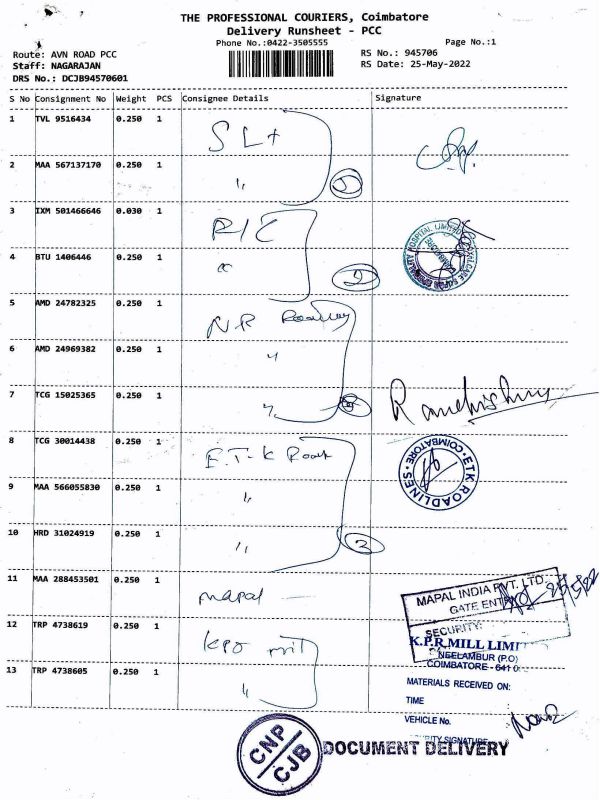 THE PROFESSIONAL COURIERS, Coimbatore
Delivery Runsheet - PCC
Phone No.:0422-3505555 Page No.:1
Route: AVN ROAD PCC RS No.: 945706
Staff: NAGARAJAN RS Date: 25-May-2022
DRS No.: DCJB94570601
S No Consignment No Weight PCS Consignee Details Signature
1 TVL 9516434 0.250 1
2 MAA 567137170 0.250 1 "
3 IXM 501466646 0.030 1
4 BTU 1406446 0.250 1
5 AMD 24782325 0.250 1 N.R
6 AMD 24969382 0.250 1 "
7 TCG 15025365 0.250 1 "
8 TCG 30014438 0.250 1 E.T.K
COIMBATORE ETK ROADLINES
9 MAA 566055830 0.250 1 "
10 HRD 31024919 0.250 1 "
11 MAA 288453501 0.250 1 mapal
MAPAL INDIA PVT. LTD.
GATE ENTRY
12 TRP 4738619 0.250 1
SECURITY:
K.P.R.MILL LIMI
NEELAMBUR (P.O)
COIMBATORE - 641 0
13 TRP 4738605 0.250 1 "
MATERIALS RECEIVED ON:
TIME
VEHICLE No.
CNP
CJB
DOCUMENT DELIVERY